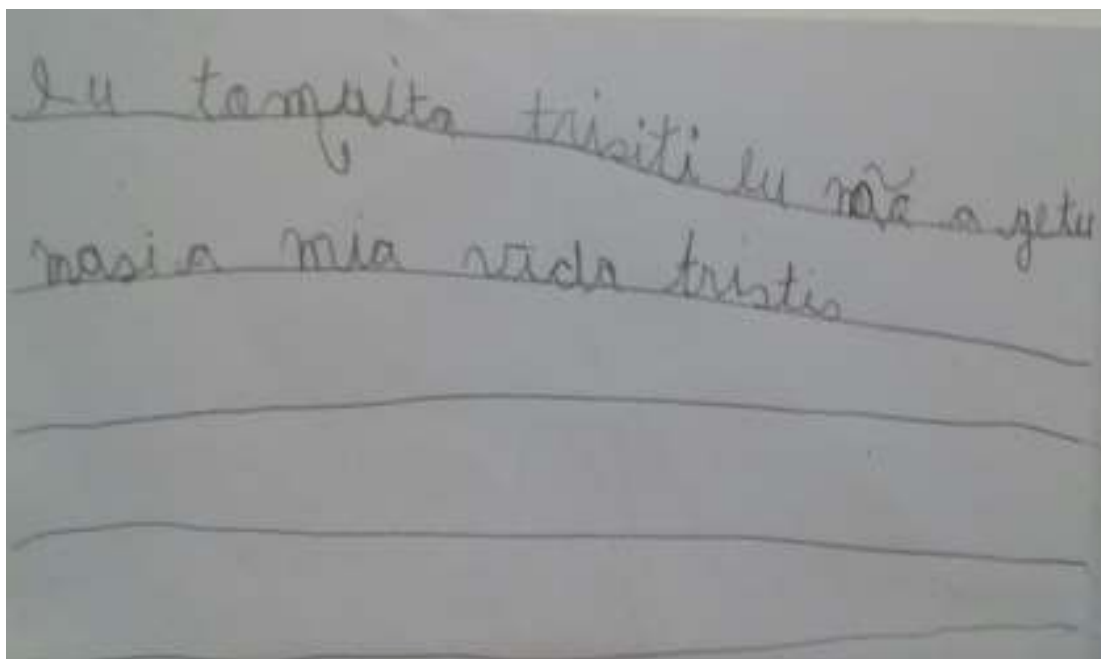 eu tomuito trisiti eu nõã a getu
masi a mia vida tristis